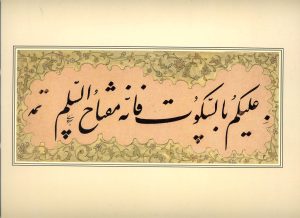 عليكم بالسكوت فانّه مفتاح السّلم